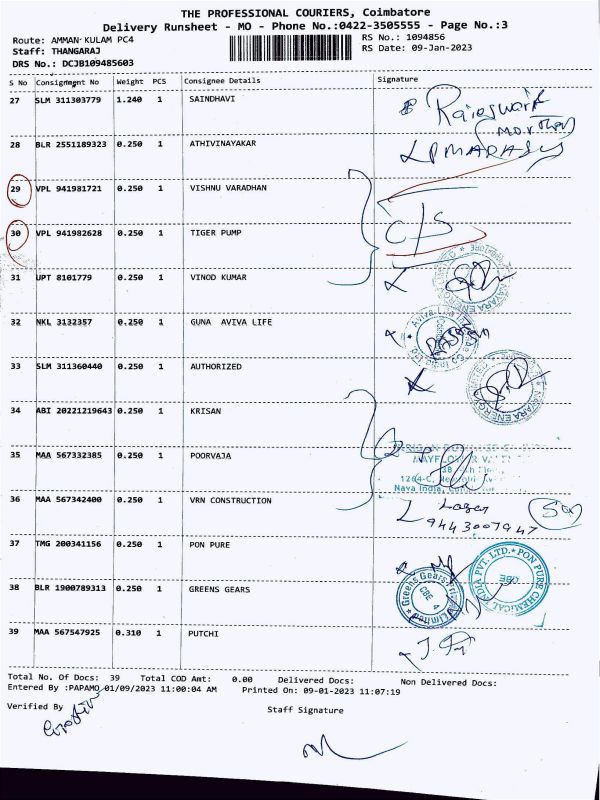 THE PROFESSIONAL COURIERS, Coimbatore
Delivery Runsheet - MO - Phone No.:0422-3505555 - Page No.:3
Route: AMMAN KULAM PC4 RS No.: 1094856
Staff: THANGARAJ RS Date: 09-Jan-2023
DRS No.: DCJB109485603
S No Consignment No Weight PCS Consignee Details Signature
27 SLM 311303779 1.240 1 SAINDHAVI
28 BLR 2551189323 0.250 1 ATHIVINAYAKAR
29 VPL 941981721 0.250 1 VISHNU VARADHAN
30 VPL 941982628 0.250 1 TIGER PUMP C/S
31 UPT 8101779 0.250 1 VINOD KUMAR
32 NKL 3132357 0.250 1 GUNA AVIVA LIFE
33 SLM 311360440 0.250 1 AUTHORIZED
34 ABI 20221219643 0.250 1 KRISAN
35 MAA 567332385 0.250 1 POORVAJA
36 MAA 567342400 0.250 1 VRN CONSTRUCTION
9443007947
37 TMG 200341156 0.250 1 PON PURE
PVT. LTD. * PON PURE CHEMICAL
38 BLR 1900789313 0.250 1 GREENS GEARS
Greens Gears Limited
CBE 4
39 MAA 567547925 0.310 1 PUTCHI
Total No. Of Docs: 39 Total COD Amt: 0.00 Delivered Docs: Non Delivered Docs:
Entered By :PAPAMO 01/09/2023 11:00:04 AM Printed On: 09-01-2023 11:07:19
Verified By Staff Signature